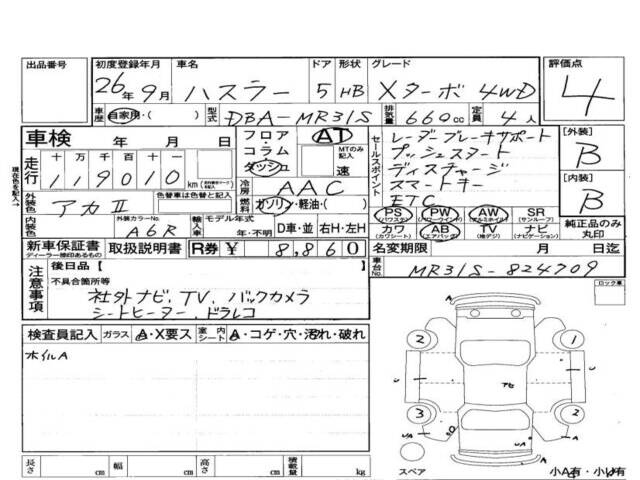 出品番号 初度登録年月 車名 ドア 形状 グレード 評価点
26年 9月 ハスラー 5 HB Xターボ 4WD 4
車歴 自家用・( ) 型式 DBA-MR31S 排気量 660cc 定員 4人
車検 年 月 日 フロア AT セールスポイント レーダブレーキサポート [外装]
走行 十 万 千 百 十 一 コラム MTのみ記入 プッシュスタート B
119010 km ダッシュ 速 ディスチャージ
冷房 AAC スマートキー [内装]
外装色 アカⅡ 色替車は色替と元色 燃料 ガソリン・軽油・( ) ETC B
PS (パワステ) PW (パワーウインド) AW (アルミホイル) SR (サンルーフ) 純正品のみ丸印
内装色 外装カラーNo. A6R 輸入車 モデル年式 年・不明 D車・並 右H・左H カワ (カワシート) AB (エアバッグ) TV (地デジ) ナビ (ナビゲーション)
新車保証書 ディーラー捺印あるもの 取扱説明書 R券 ¥ 8,860 名変期限 月 日迄
注意事項 後日品 [ ] 車台No. MR31S-824709
不具合箇所等 ロック車
社外ナビ、TV、バックカメラ
シートヒーター、ドラレコ
検査員記入 ガラス A・X要ス 室内シート A・コゲ・穴・汚れ・破れ
ホイルA
2 1
U U
3 2
UA UA A
スペア 小A有・小U有
長さ cm 幅 cm 高さ cm 積載量 kg
現在色を記入→